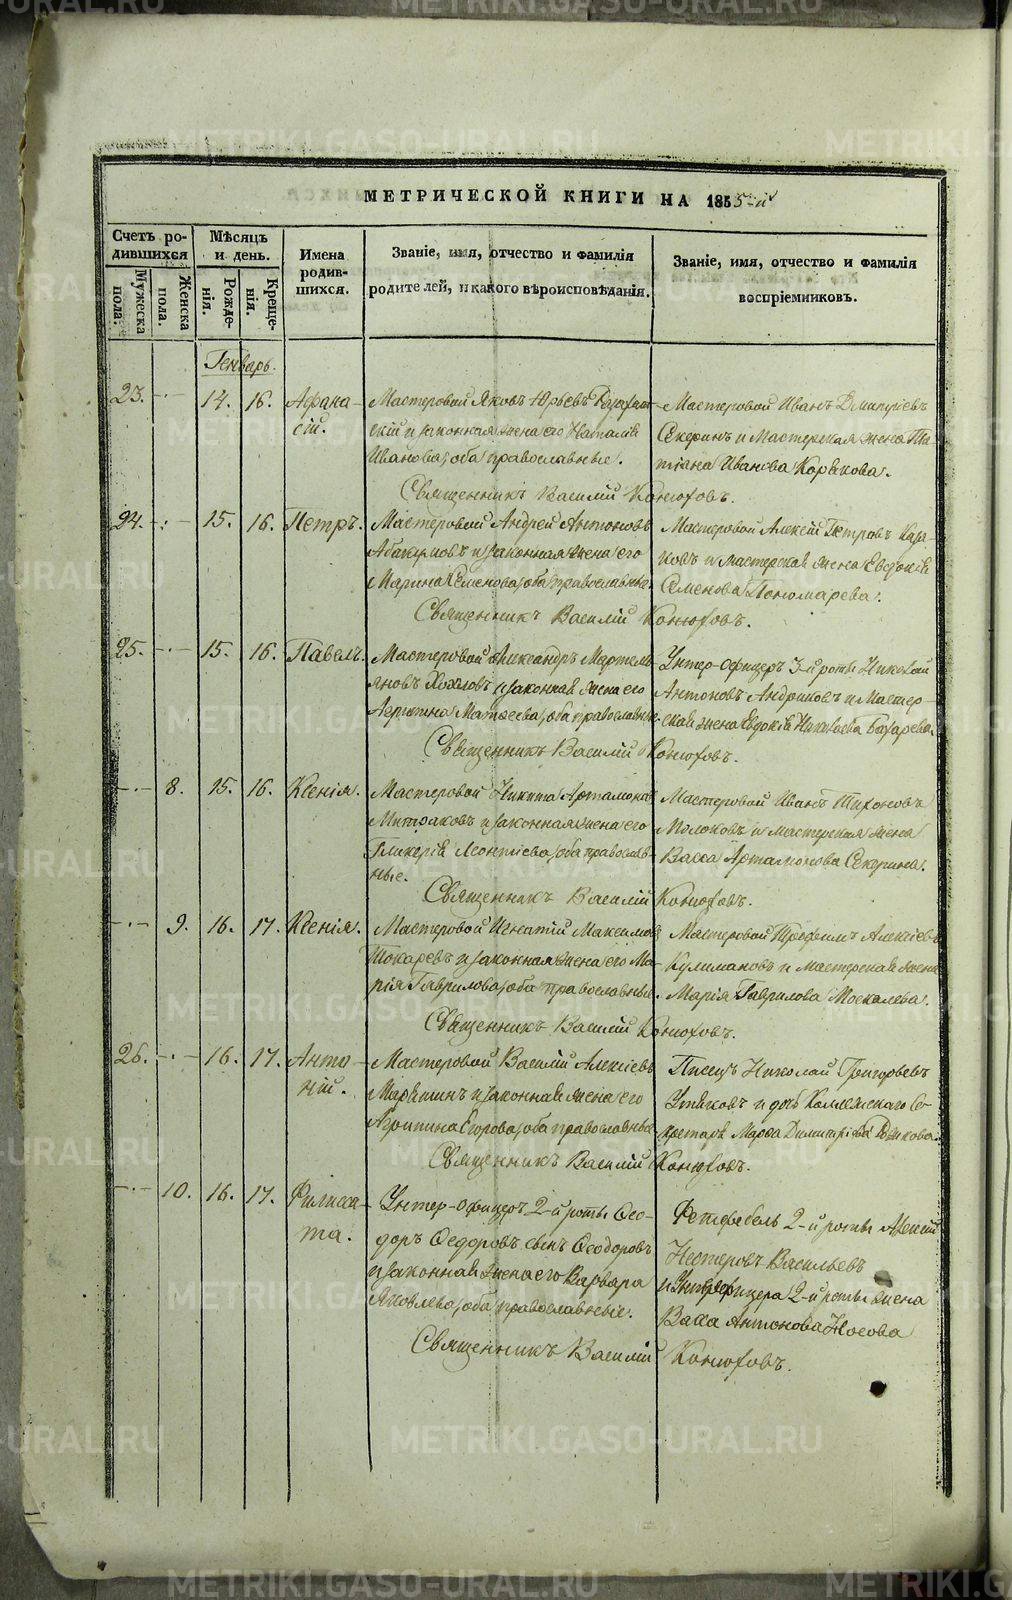 МЕТРИЧЕСКОЙ КНИГИ НА 1855-й
Счетъ родившихся
Мужеска пола.
Женска пола.
Мѣсяцъ и день.
Рожденія.
Крещенія.
Имена родившихся.
Званіе, имя, отчество и фамилія
родителей, и какого вѣроисповѣданія.
Званіе, имя, отчество и фамилія
воспріемниковъ.
Генварь.
23. 14. 16. Афанасій.
Мастеровой Яковъ Юрьевъ
и законная жена его Наталія
Иванова, оба православные.
Мастеровой Иванъ Дмитріевъ
Секеринъ и Мастерская жена Татіана Иванова Корякова.
Священникъ Василій Конюховъ.
24. 15. 16. Петръ.
Мастеровой Андрей Антоновъ
Абакумовъ и законная жена его
Марина Семенова, оба православные.
Мастеровой Алексій Петровъ Казаковъ и мастерская жена Евдокія
Семенова Пономарева.
Священникъ Василій Конюховъ.
25. 15. 16. Павелъ.
Мастеровой Александръ Мартемьяновъ Хохловъ и законная жена его
Агрипина Матѳеева, оба православные.
Унтер-офицеръ 3-й роты Николай
Антоновъ Андриковъ и Мастерская жена Евдокія Николаева Базарева.
Священникъ Василій Конюховъ.
8. 15. 16. Ксенія.
Мастеровой Никита Артамоновъ
и законная жена его
Гликерія Леонтіева, оба православные.
Мастеровой Иванъ Тихоновъ
Молоковъ и мастерская жена
Васса Артамонова Секерина.
Священникъ Василій Конюховъ.
9. 16. 17. Ксенія.
Мастеровой Игнатій Максимовъ
Токаревъ и законная жена его Марія Гаврилова, оба православные.
Мастеровой Трофимъ Алексіевъ
Кулимановъ и мастерская жена
Марія Гаврилова Москалева.
Священникъ Василій Конюховъ.
26. 16. 17. Антоній.
Мастеровой Василій Алексіевъ
и законная жена его
Агрипина Егорова, оба православные.
Писецъ Николай Григорьевъ
Утяковъ и дочь Коллежскаго Секретаря Марѳа Димитріева
Священникъ Василій Конюховъ.
10. 16. 17. Филиссата.
Унтер-офицеръ 2-й роты Ѳеодоръ Ѳедоровъ сынъ Ѳеодоровъ
и законная жена его Варвара
Яковлева, оба православные.
Фельдфебель 2-й роты
Нестеровъ Васильевъ
и Унтерофицера 2-й роты жена
Васса Антонова Носова
Священникъ Василій Конюховъ.
METRIKI.GASO-URAL.RU